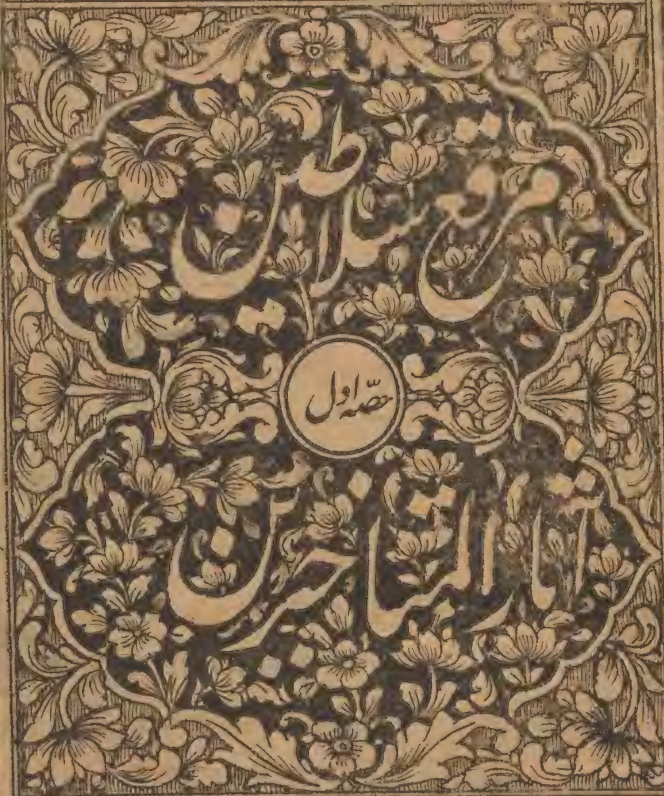 مرقع سلاطین
حصّہ اول
آثار المتاخرین